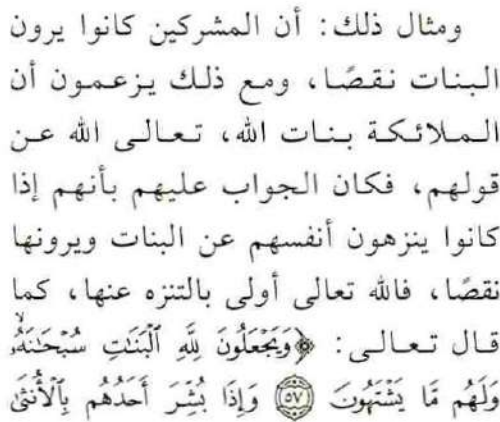 ومثال ذلك: أن المشركين كانوا يرون
البنات نقصًا، ومع ذلك يزعمون أن
الملائكة بنات الله، تعالى الله عن
قولهم، فكان الجواب عليهم بأنهم إذا
كانوا ينزهون أنفسهم عن البنات ويرونها
نقصًا، فالله تعالى أولى بالتنزه عنها، كما
قال تعالى: ﴿وَيَجْعَلُونَ لِلَّهِ ٱلْبَنَٰتِ سُبْحَٰنَهُۥ ۙ
وَلَهُم مَّا يَشْتَهُونَ ۝٥٧ وَإِذَا بُشِّرَ أَحَدُهُم بِٱلْأُنثَىٰ